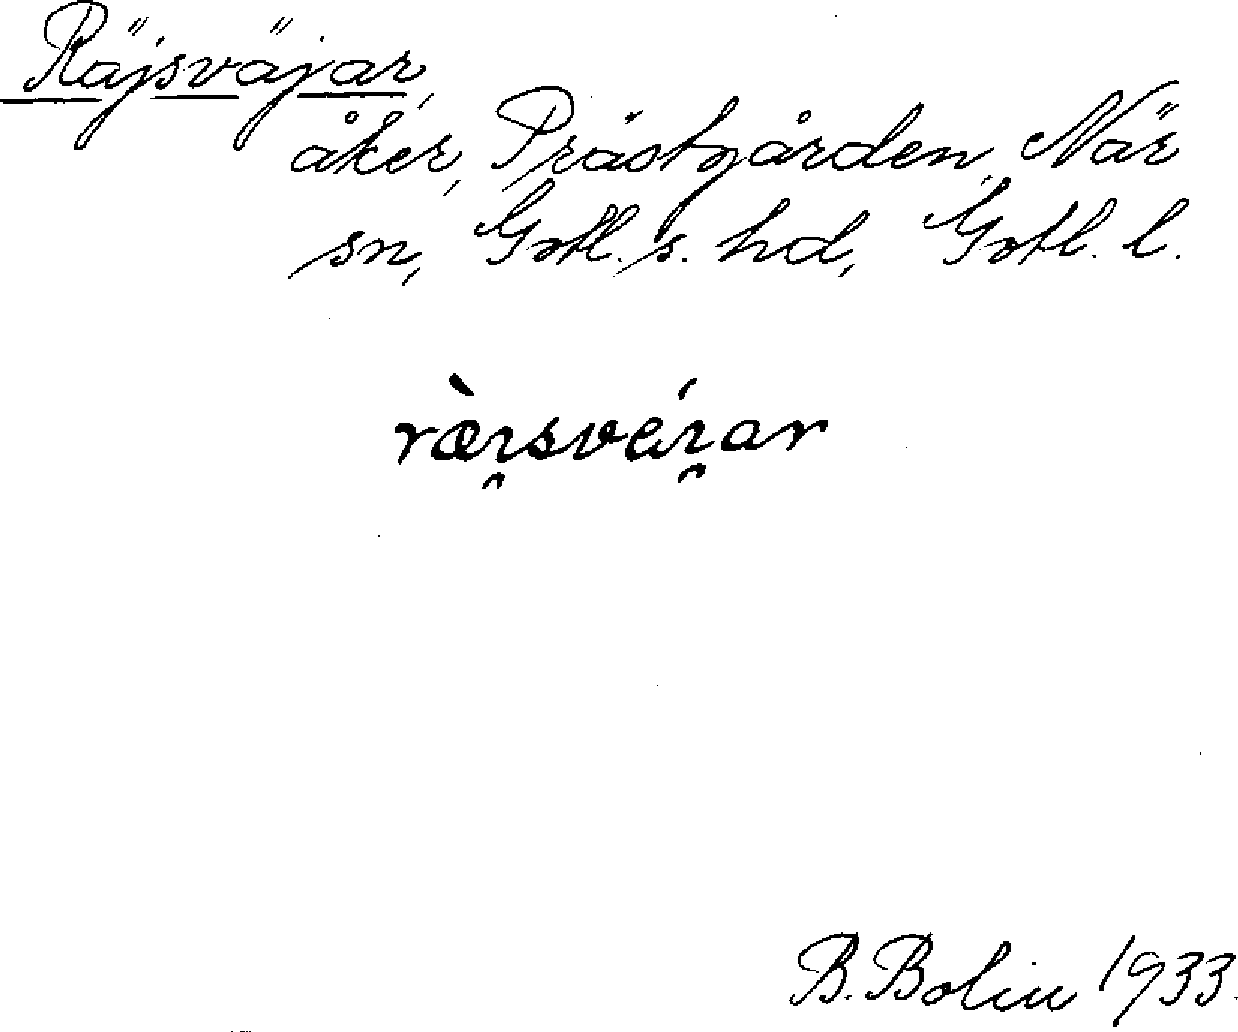 Räjsväjar,
åker, Prästgården, När
sn, Gotl. s. hd, Gotl. l.
B. Bolin 1933.